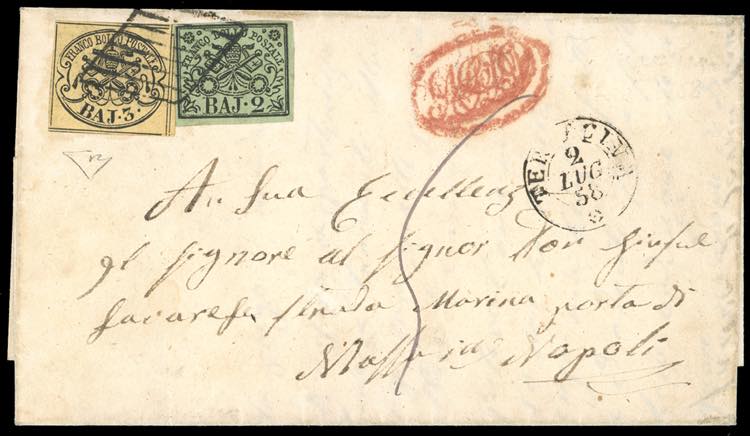 FRANCO BOLLO POSTALE
BAJ. 3.
FRANCO BOLLO POSTALE
BAJ. 2
TERRACINA
2
LUG
58
A Sua Eccellenza
Il Signore il Signor Don
Strada Marina porta di
Massa in Napoli